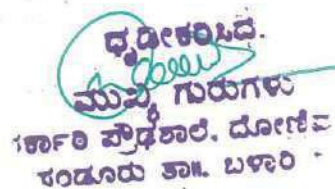 ಧೃಡೀಕರಿಸಿದೆ.
ಮುಖ್ಯ ಗುರುಗಳು
ಸರ್ಕಾರಿ ಪ್ರೌಢಶಾಲೆ.
ಸಂಡೂರು ತಾ॥. ಬಳ್ಳಾರಿ